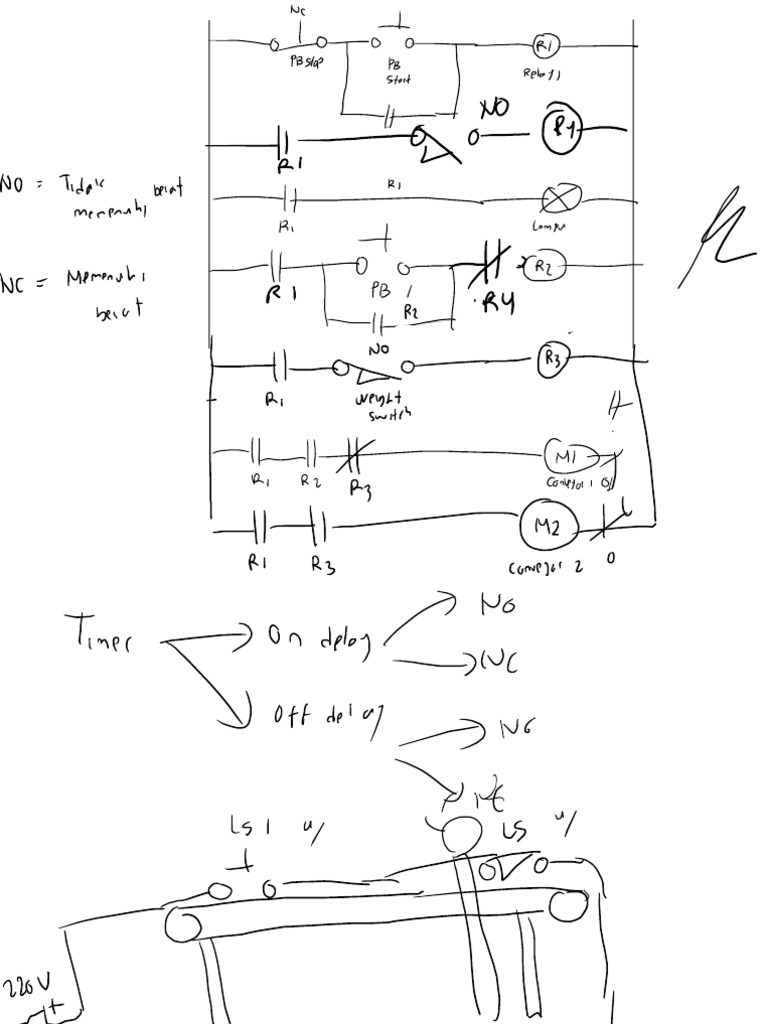 NC
PB stop
PB
start
R1
Relay 1
NO
R1
R4
NO = Tidak
memenuhi berat
R1
R1
Lampu
NC = Memenuhi
berat
R1
PB 1
R2
R4
R2
NO
R1
weight
switch
R3
R1
R2
R3
M1
Conveyor 1
R1
R3
M2
Conveyor 2
0
Timer
On delay
NO
NC
Off delay
NO
NC
LS 1
LS
220V
+